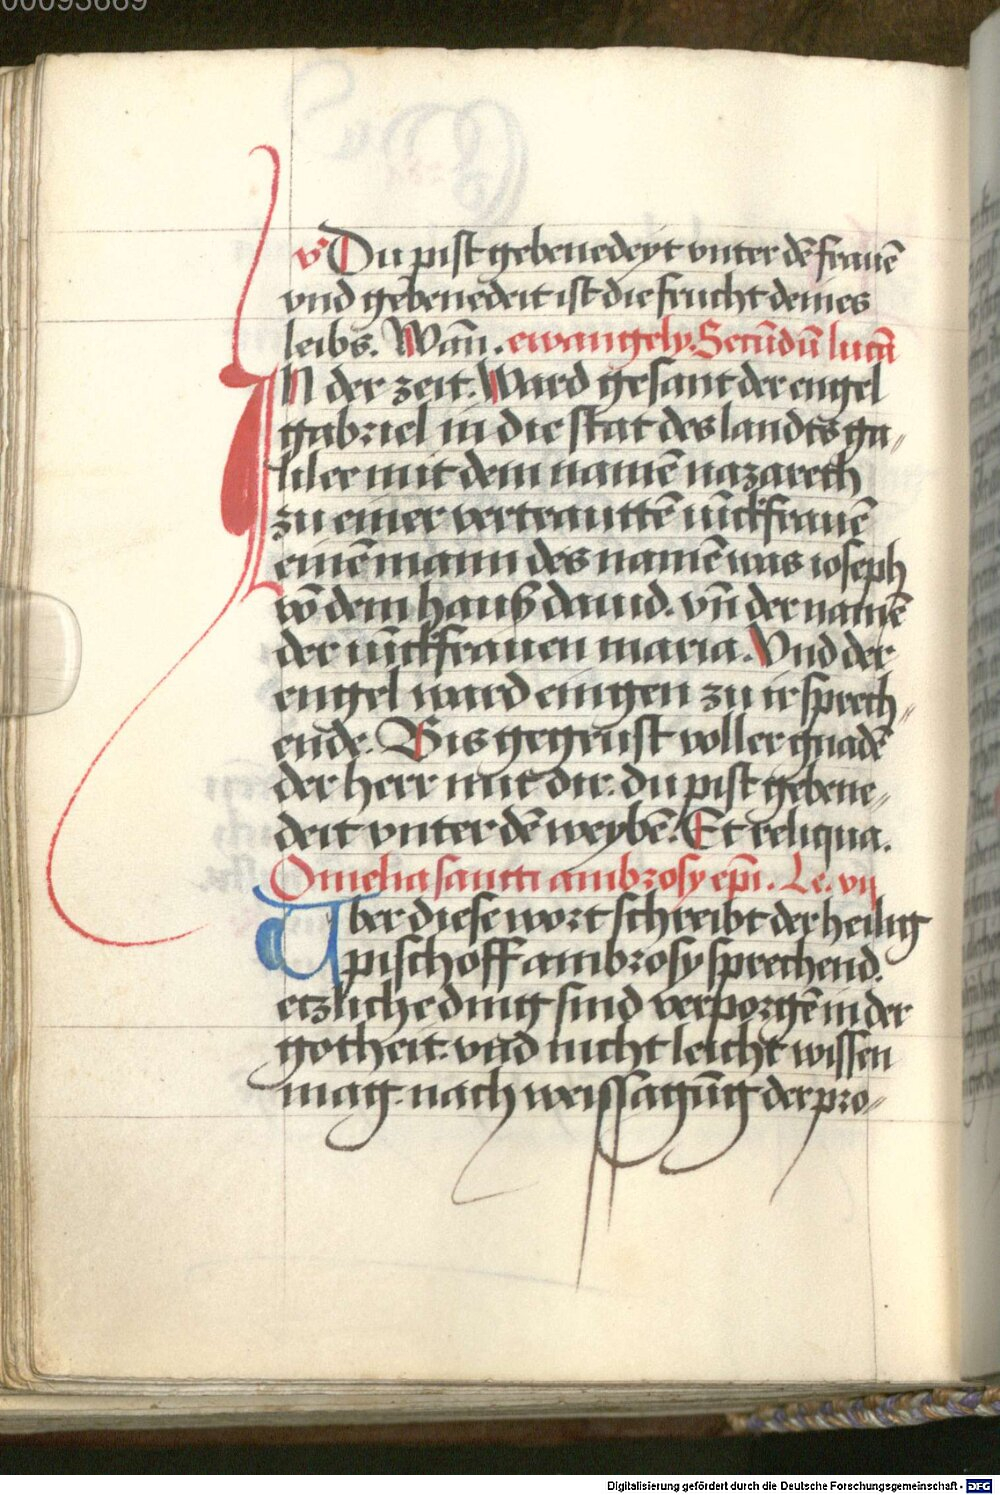 00093669
v Du pist gebenedeyt vnter dē frauē
vnd gebenedeit ist die frucht deines
leibs. Wañ. ewangely. Secūdū lucā
IN der zeit. Ward gesant der engel
gabriel in die stat des landts ga„
lilee mit dem namē nazareth
zu einer vertrauttē iūckfrauē
einē mann des namē was ioseph
vō dem hauß dauid. vñ der namē
der iūckfrauen maria. Vnd der
engel ward eingen zu ir sprech„
ende. Bis gegrust voller gnadē
der herr mit dir. du pist gebene„
deit vnter dē weybē. Et reliqua.
Omelia sancti ambrosy ep̄i. Le. vij
Uber diese wort schreibt der heilig
pischoff ambrosy sprechend.
etzliche ding sind verporgē in der
gotheit. vnd nicht leicht wissen
mag. nach weissagūg der pro„
Digitalisierung gefördert durch die Deutsche Forschungsgemeinschaft - DFG